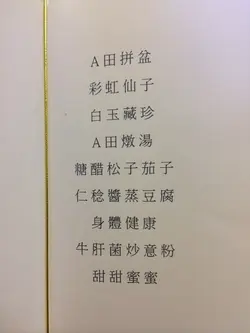 A田拼盆
彩虹仙子
白玉藏珍
A田燉湯
糖醋松子茄子
仁稔醬蒸豆腐
身體健康
牛肝菌炒意粉
甜甜蜜蜜